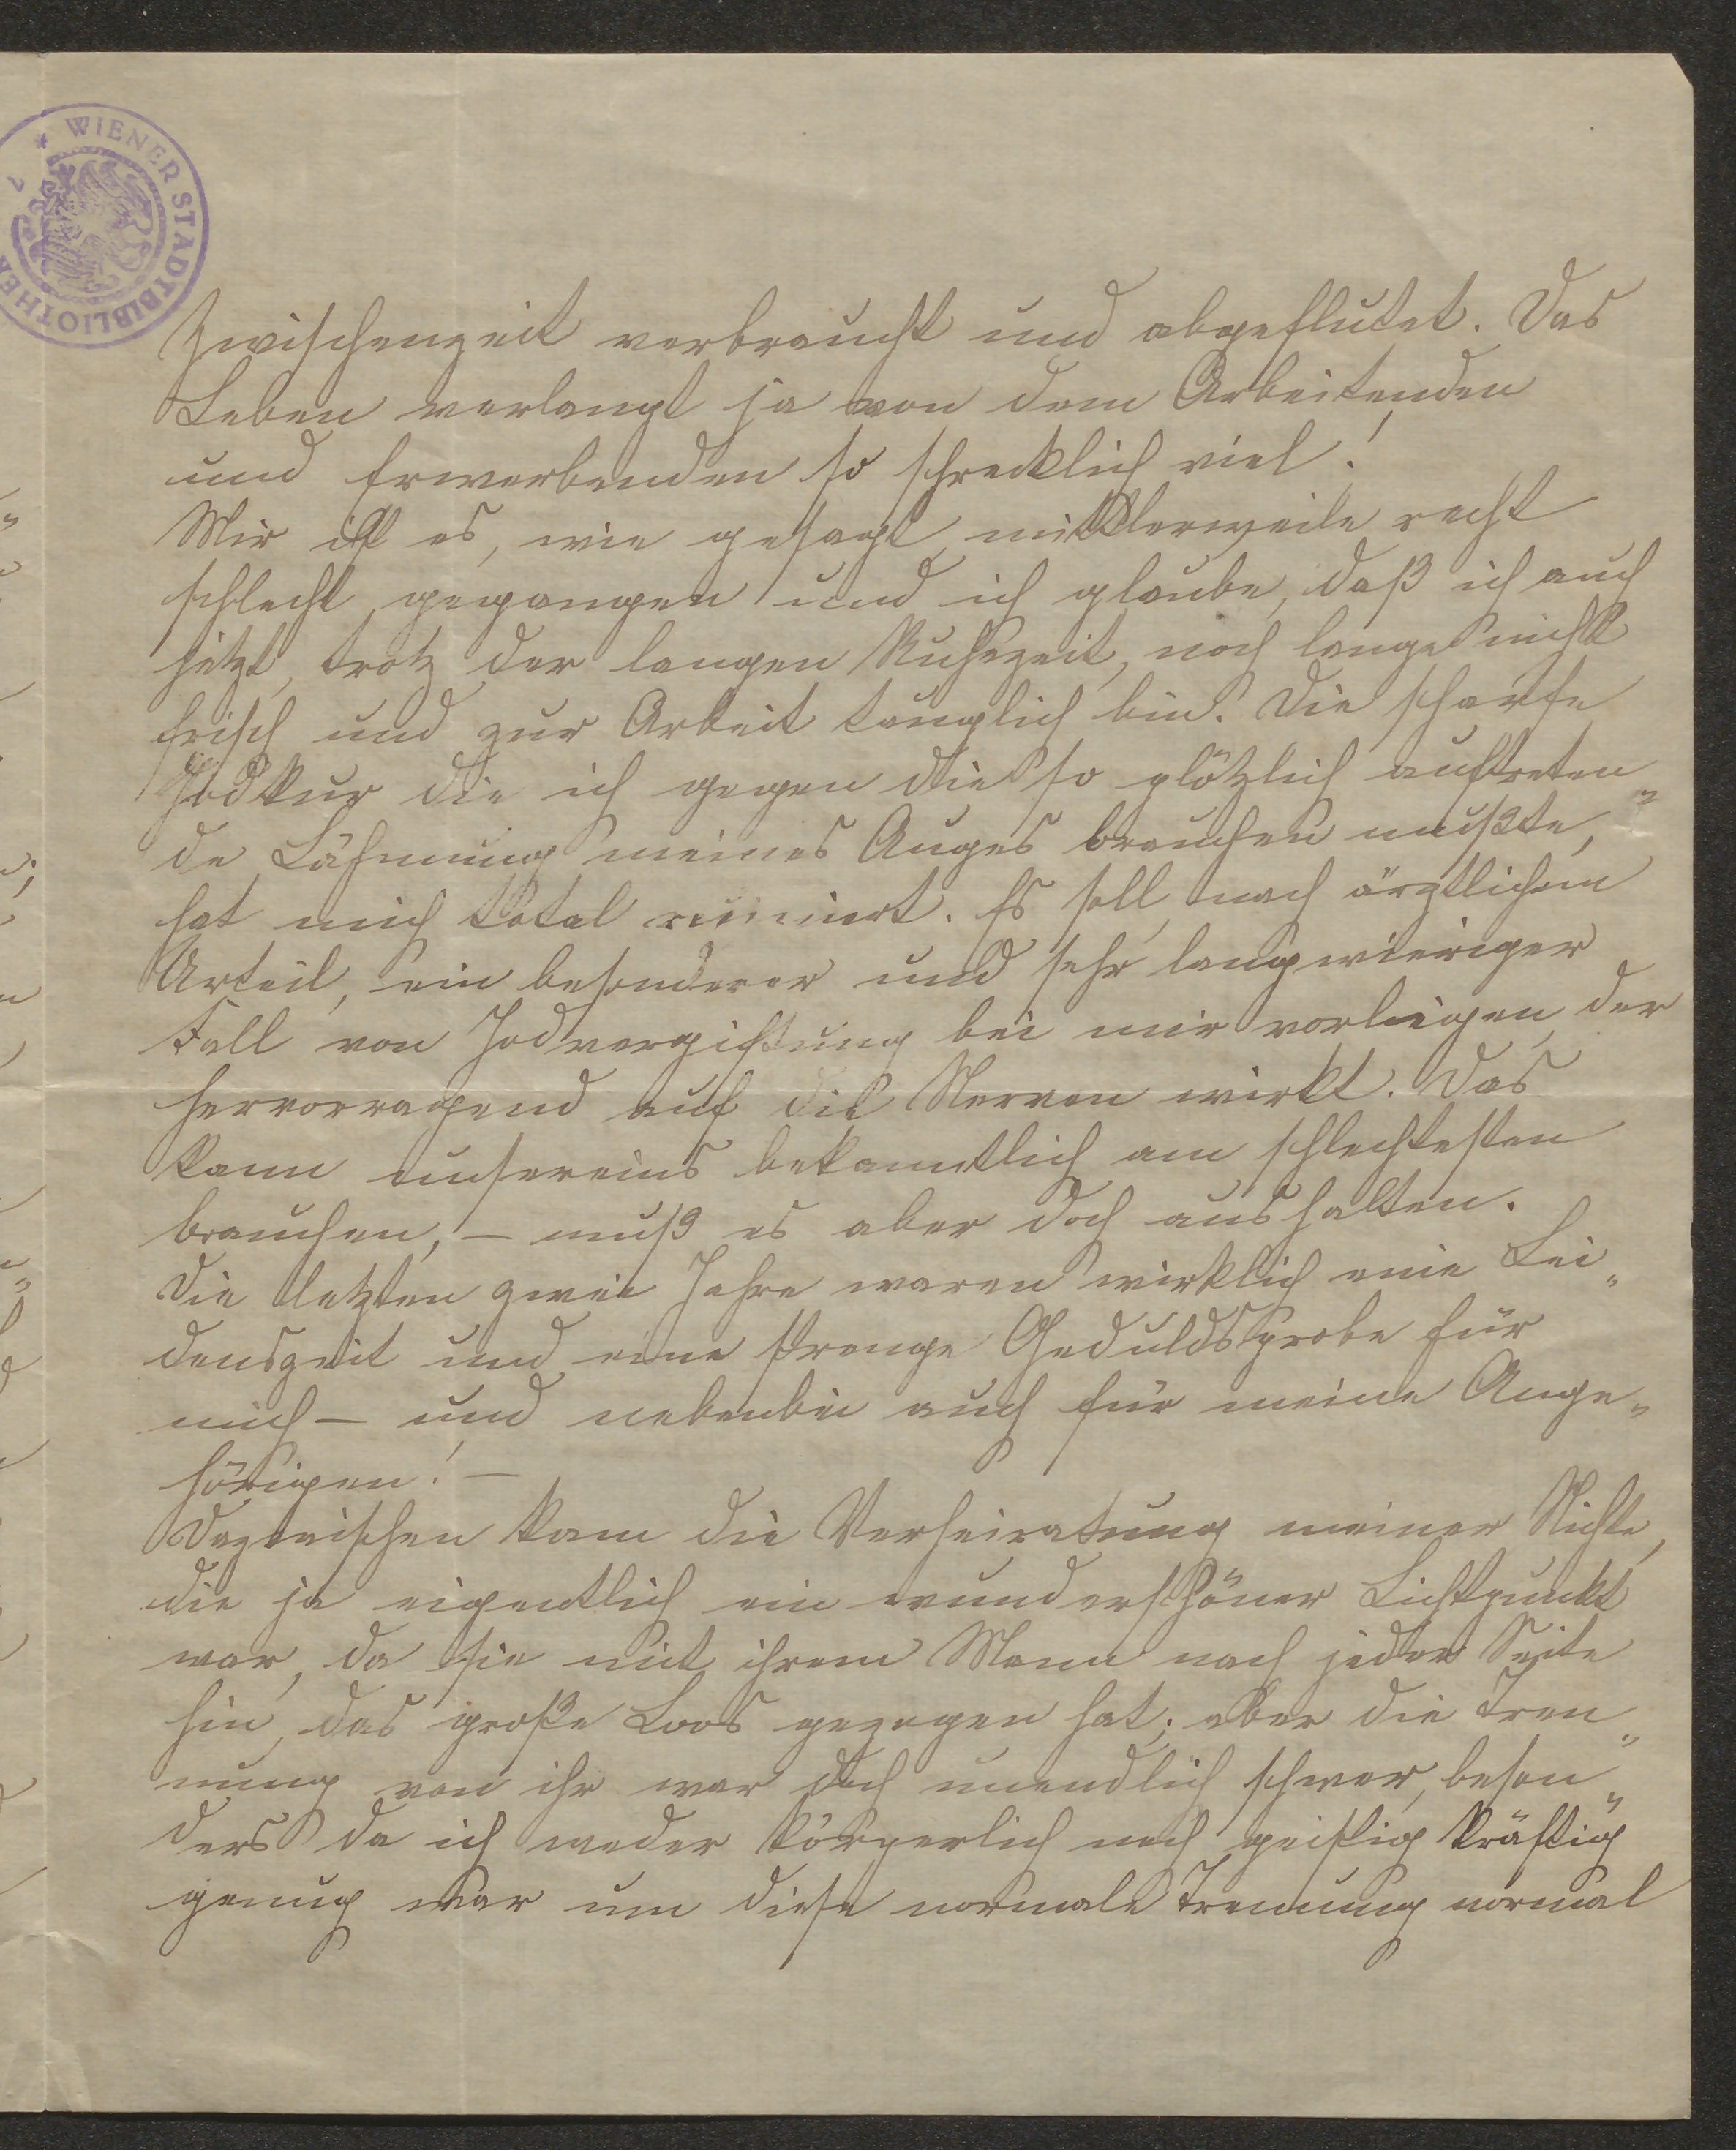 WIENER STADTBIBLIOTHEK
Zwischenzeit verbraucht und abgeflutet. Das
Leben verlangt ja von dem Arbeitenden
und Erwerbenden so schrecklich viel!
Mir ist es, wie gesagt, mittlerweile recht
schlecht gegangen und ich glaube, daß ich auch
jetzt, trotz der langen Ruhezeit, noch lange nicht
frisch und zur Arbeit tauglich bin. Die scharfe
Jodkur die ich gegen die so plötzlich auftreten„
de Lähmung meines Auges brauchen mußte,
hat mich total ruiniert. Es soll, nach ärztlichem
Urteil, ein besonderer und sehr langwieriger
Fall von Jodvergiftung bei mir vorliegen, der
hervorragend auf die Nerven wirkt. Das
kann unsereins bekanntlich am schlechtesten
brauchen, – muß es aber doch aushalten.
Die letzten zwei Jahre waren wirklich eine Lei„
denszeit und eine strenge Geduldsprobe für
mich – und nebenbei auch für meine Ange„
hörigen! –
Dazwischen kam die Verheiratung meiner Nichte,
die ja eigentlich ein wunderschöner Lichtpunkt
war, da sie mit ihrem Mann nach jeder Seite
hin, das große Loos gezogen hat; aber die Tren„
nung von ihr war doch unendlich schwer, beson„
ders da ich weder körperlich noch geistig kräftig
genug war um diese normale Trennung normal